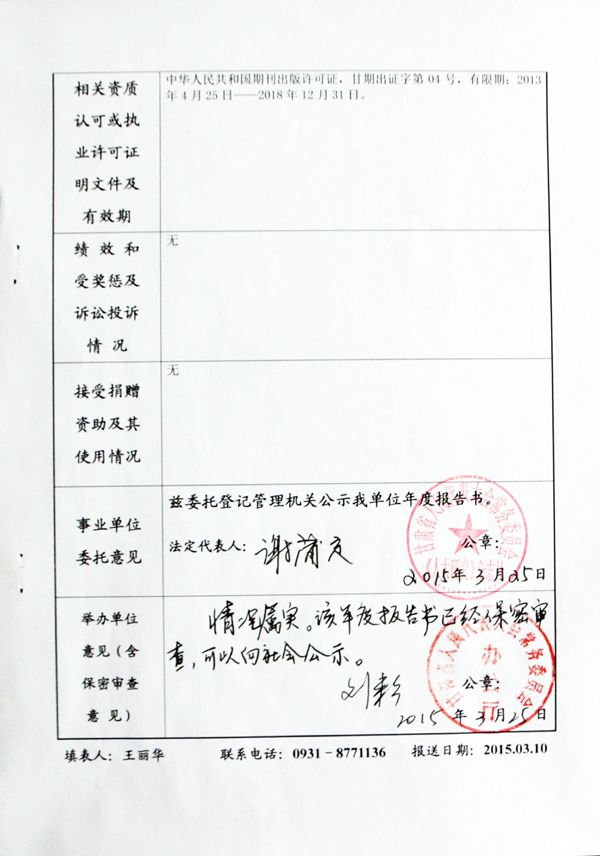 相关资质
认可或执
业许可证
明文件及
有效期
中华人民共和国期刊出版许可证，甘期出证字第 04 号，有限期：2013
年 4 月 25 日——2018 年 12 月 31 日。
绩 效 和
受奖惩及
诉讼投诉
情 况
无
接受捐赠
资助及其
使用情况
无
事业单位
委托意见
兹委托登记管理机关公示我单位年度报告书。
法定代表人：
公章：
2015年3月25日
举办单位
意见（含
保密审查
意 见）
情况属实。该年度报告书已经保密审
查，可以向社会公示。
公章：
2015年3月25日
办公厅
填表人：王丽华 联系电话：0931－8771136 报送日期：2015.03.10